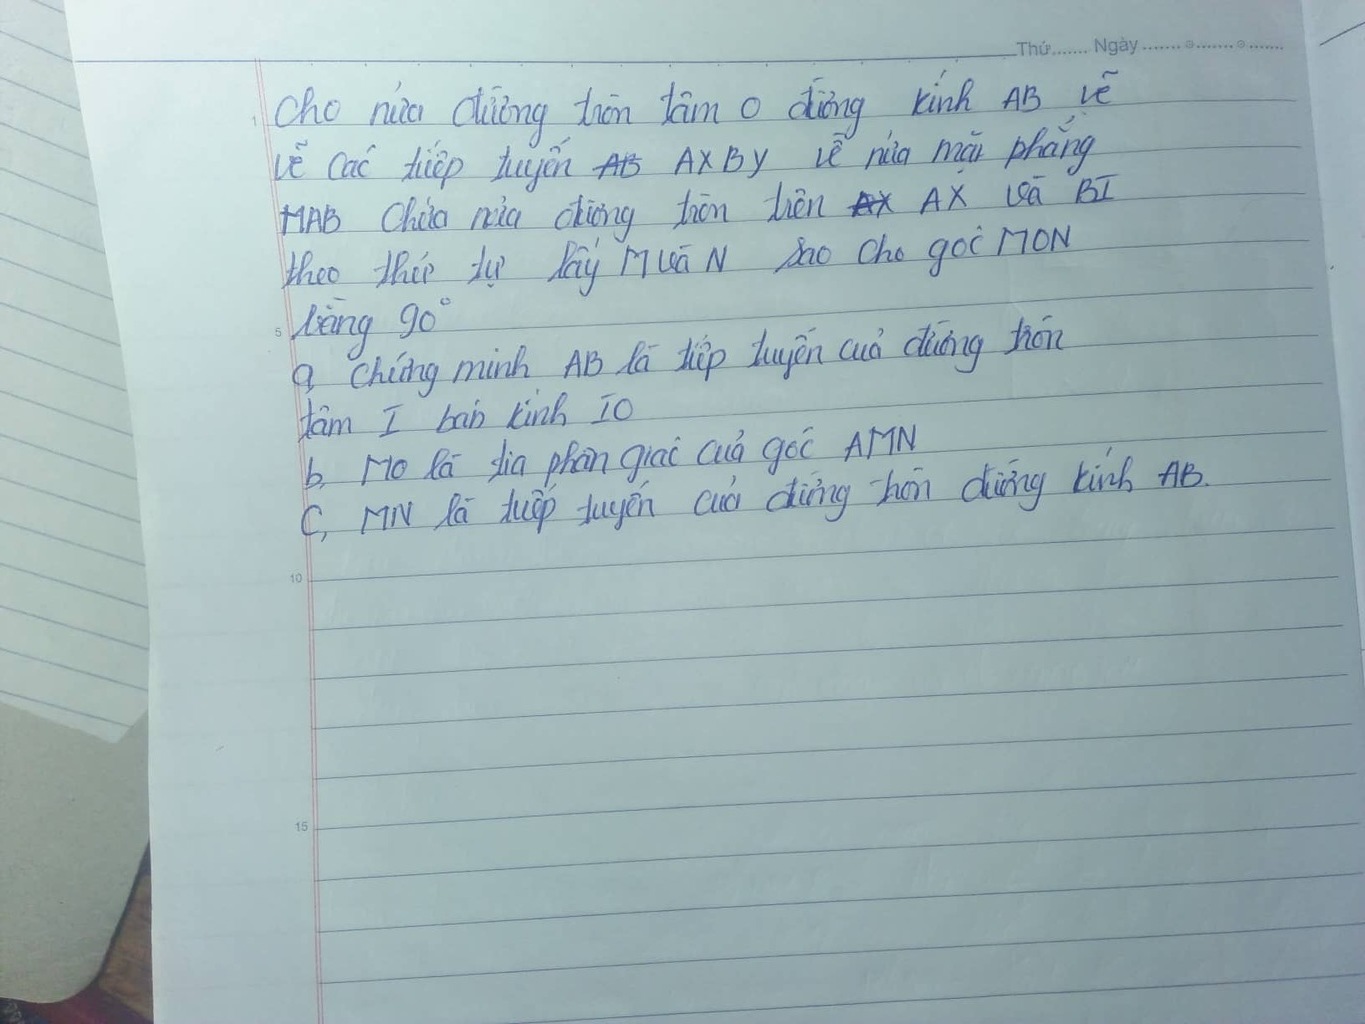 Thứ....... Ngày ....................
Cho nửa đường tròn tâm O đường kính AB vẽ
vẽ các tiếp tuyến AB AX BY về nửa mặt phẳng
MAB chứa nửa đường tròn trên AX AX và BI
theo thứ tự lấy M và N sao cho góc MON
5 bằng 90°
a chứng minh AB là tiếp tuyến của đường tròn
tâm I bán kính IO
b, MO là tia phân giác của góc AMN
C, MN là tiếp tuyến của đường tròn đường kính AB.
10
15